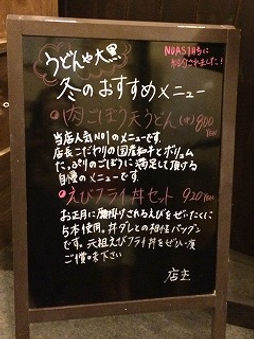 うどんや大黒
NOAS1月号に
冬のおすすめメニュー
●肉ごぼう天うどん(中)800YEN
当店人気NO1のメニューです。
店長こだわりの国産和牛とボリューム
たっぷりのごぼうに満足して頂ける
自慢のメニューです。
●えびフライ丼セット 920YEN
お正月に腰掛けされるえびをぜいたくに
5本使用。丼ダレとの相性バツグン
です。元祖えびフライ丼をぜひ一度
ご賞味下さい
店主